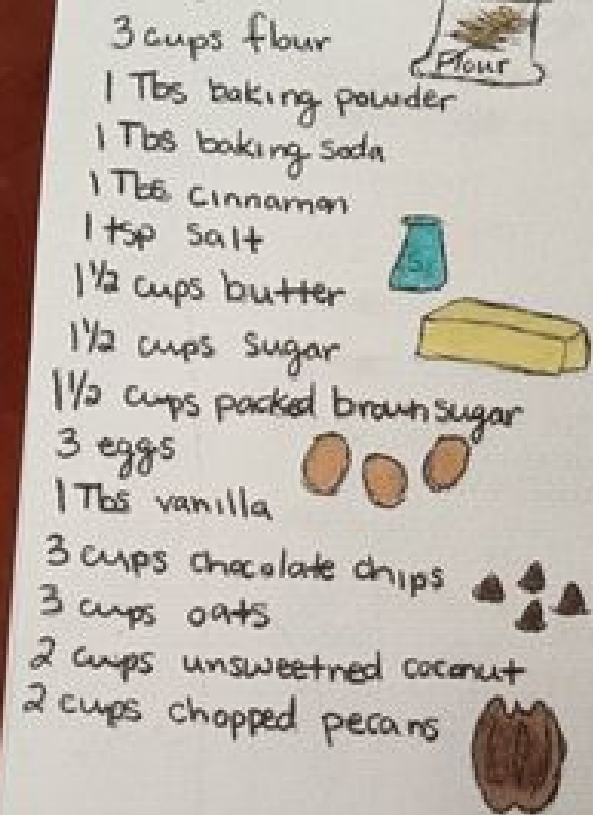 3 cups flour
Flour
1 Tbs baking powder
1 Tbs baking soda
1 Tbs cinnamon
1 tsp salt
1 1/2 cups butter
1 1/2 cups sugar
1 1/2 cups packed brown sugar
3 eggs
1 Tbs vanilla
3 cups chocolate chips
3 cups oats
2 cups unsweetned coconut
2 cups chopped pecans